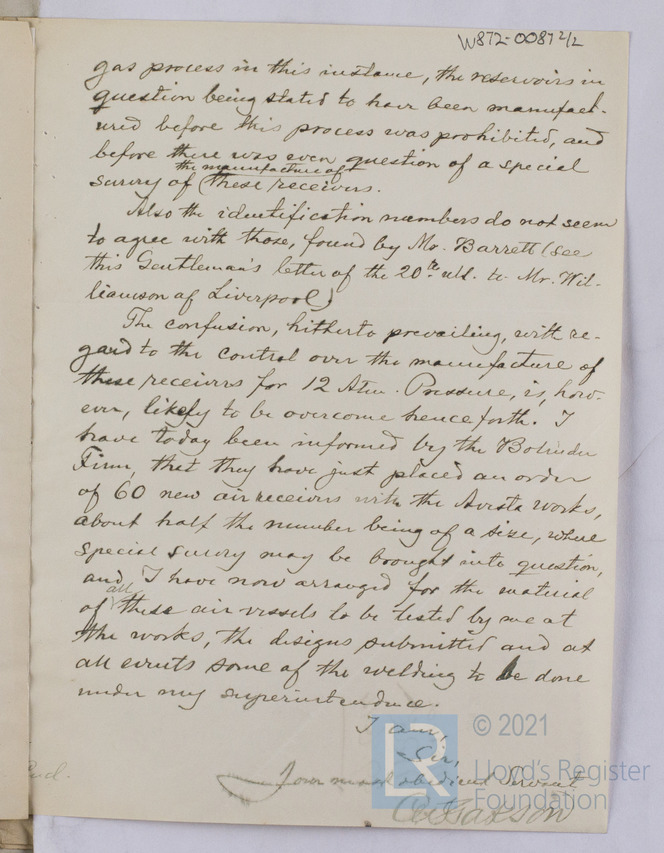 W872-0087 2/2
gas process in this instance, the reservoirs in
question being stated to have been manufact-
ured before this process was prohibited, and
before there was even question of a special
the manufacture of
survey of (these receivers.
Also the identification numbers do not seem
to agree with those, found by Mr. Barrett (see
this Gentleman's letter of the 20th ult. to Mr. Wil-
liamson of Liverpool)
The confusion, hitherto prevailing, with re-
gard to the control over the manufacture of
these receivers for 12 Atm. Pressure, is, how-
ever, likely to be overcome hence forth. I
have today been informed by the Bolinder
Firm, that they have just placed an order
of 60 new air receivers with the Avesta works,
about half the number being of a size, where
special survey may be brought into question,
and I have now arranged for the material
all
of these air vessels to be tested by me at
the works, the designs submitted and at
all events some of the welding to be done
under my superintendence.
I am,
Sir,
Your most obedient Servant
© 2021
LR
Lloyd's Register
Foundation